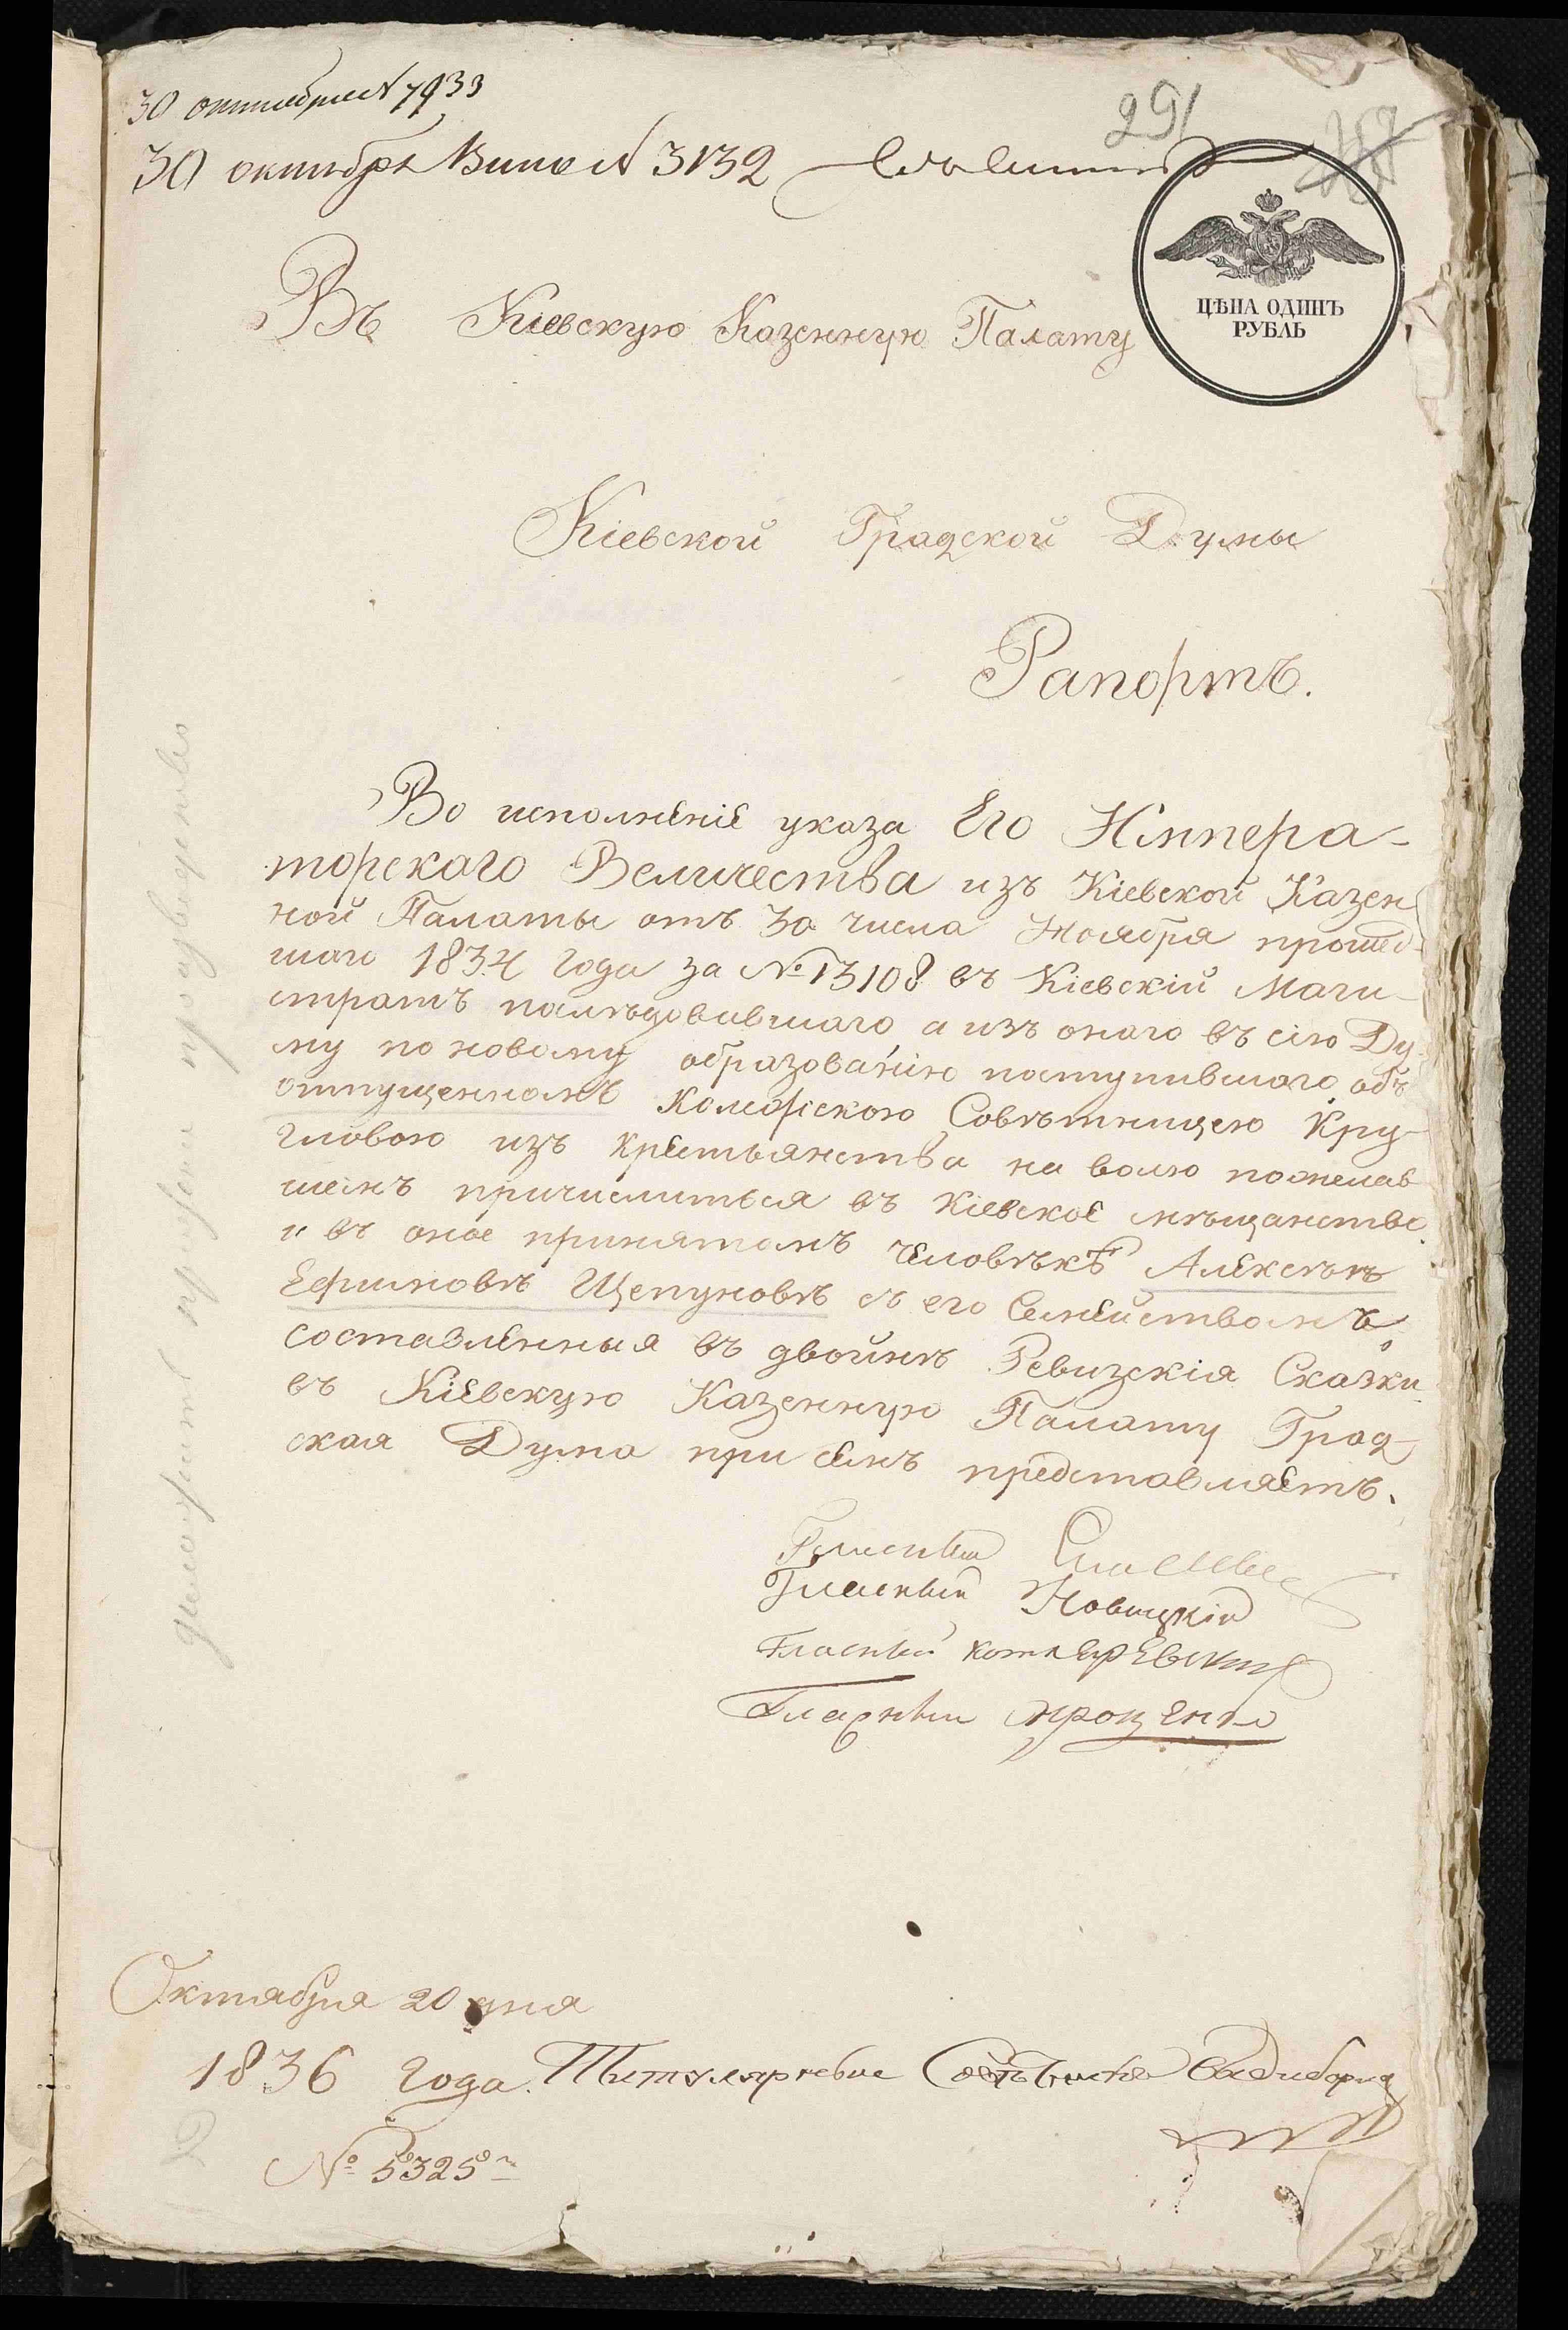 30 октября N 7933
30 октября Вино N 3132
291
ЦѢНА ОДИНЪ
РУБЛЬ
Въ Кіевскую Казенную Палату
Кіевской Градской Думы
Рапортъ.
Во исполненіе указа Его Импера-
торскаго Величества изъ Кіевской Казен
ной Палаты отъ 30 числа Ноября прошед-
шаго 1834 года за № 13108 въ Кіевскій Маги-
стратъ послѣдовавшаго а изъ онаго въ сію Ду-
му по новому образованію поступившаго, объ
отпущенномъ Колежскою Совѣтницею Кру-
гловою изъ крестьянства на волю пожелав
шемъ причислиться въ Кіевское мѣщанство
и въ оное принятомъ человѣкѣ Алексѣѣ
Ефимовѣ Щепуновѣ съ его Семействомъ,
составленныя въ двойнѣ Ревизскія Сказки
въ Кіевскую Казенную Палату Град-
ская Дума при семъ представляетъ.
Гласный
Гласный Новицкій
Гласный Котляревскій
Гласный Проценко
Октября 20 дня
1836 года. Титулярный Совѣтникъ
№ 5325